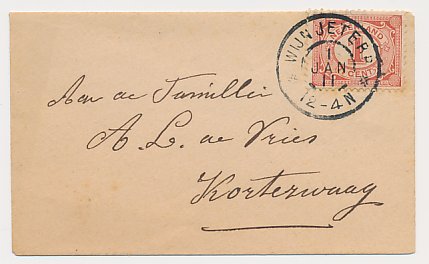 WIJNJETERP
1
JAN
11
12-4N
CENT
Aan de Familie
A. L. de Vries
Korterwaag